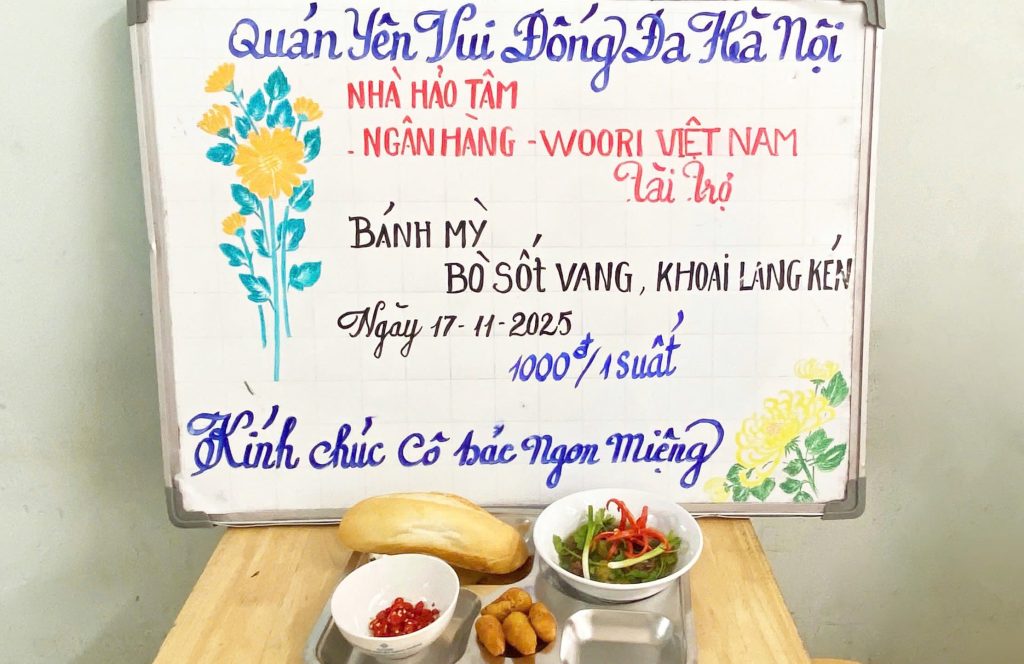 Quán Yên Vui Đống Đa Hà Nội
NHÀ HẢO TÂM
. NGÂN HÀNG - WOORI VIỆT NAM
Tài Trợ
BÁNH MỲ
BÒ SỐT VANG, KHOAI LANG KÉN
Ngày 17-11-2025
1000đ/1 suất
Kính chúc Cô bác Ngon Miệng